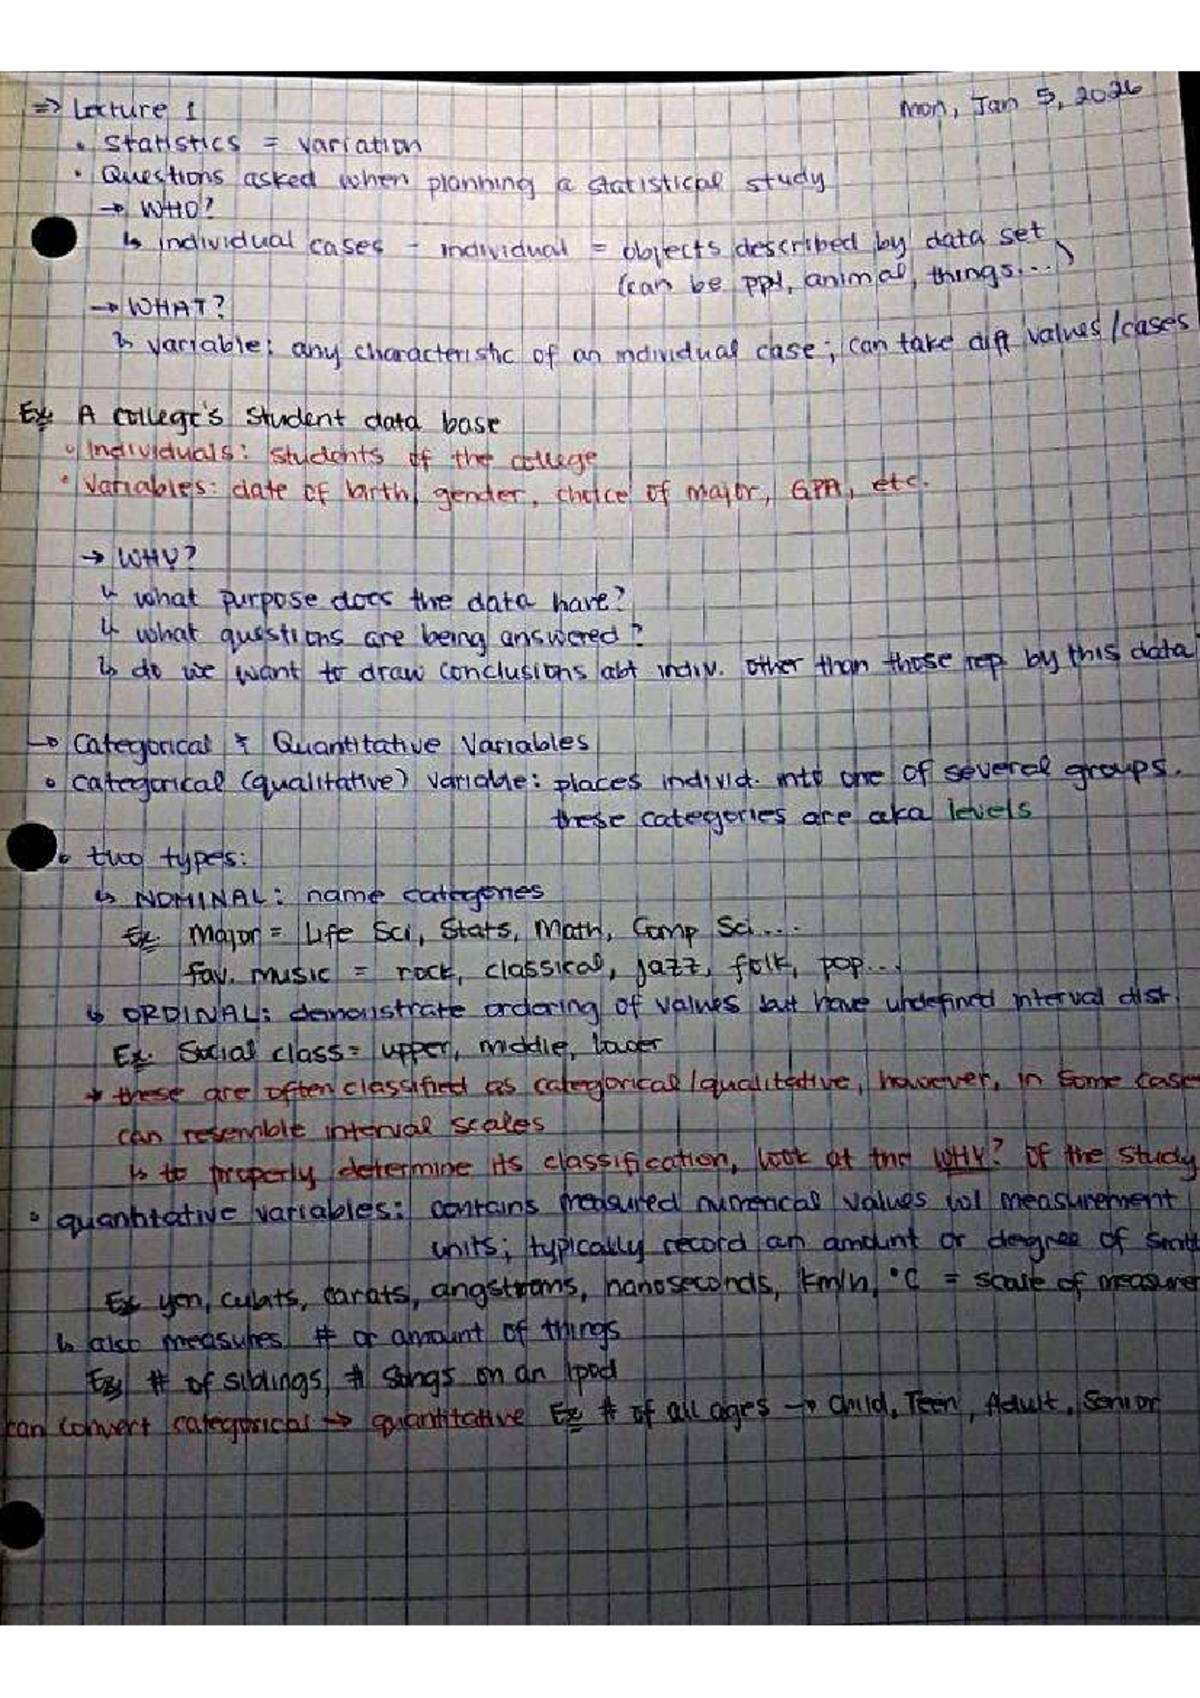 => Lecture 1
Mon, Jan 5, 2026
• Statistics = variation
• Questions asked when planning a statistical study
→ WHO?
↳ individual cases - individual = objects described by data set
(can be ppl, animal, things...)
→ WHAT?
↳ variable: any characteristic of an individual case; can take diff values/cases
Ex: A college's student data base
• Individuals: students of the college
• Variables: date of birth, gender, choice of major, GPA, etc.
→ WHY?
↳ what purpose does the data have?
↳ what questions are being answered?
↳ do we want to draw conclusions abt indiv. other than those rep by this data
→ Categorical & Quantitative Variables
• categorical (qualitative) variable: places individ. into one of several groups.
these categories are aka levels
• two types:
↳ NOMINAL: name categories
Ex: Major = Life Sci, Stats, Math, Comp Sci...
fav. music = rock, classical, jazz, folk, pop...
↳ ORDINAL: demonstrate ordering of values but have undefined interval dist
Ex: Social class = upper, middle, lower
* these are often classified as categorical/qualitative, however, in some case
can resemble interval scales
↳ to properly determine its classification, look at the WHY? of the study
• quantitative variables: contains measured numerical values w/ measurement
units; typically record an amount or degree of
Ex: yen, cubits, carats, angstroms, nanoseconds, km/h, °C = scale of measure
↳ also measures # or amount of things
Ex: # of siblings, # songs on an ipod
can convert categorical → quantitative Ex: # of all ages → Child, Teen, Adult, Senior